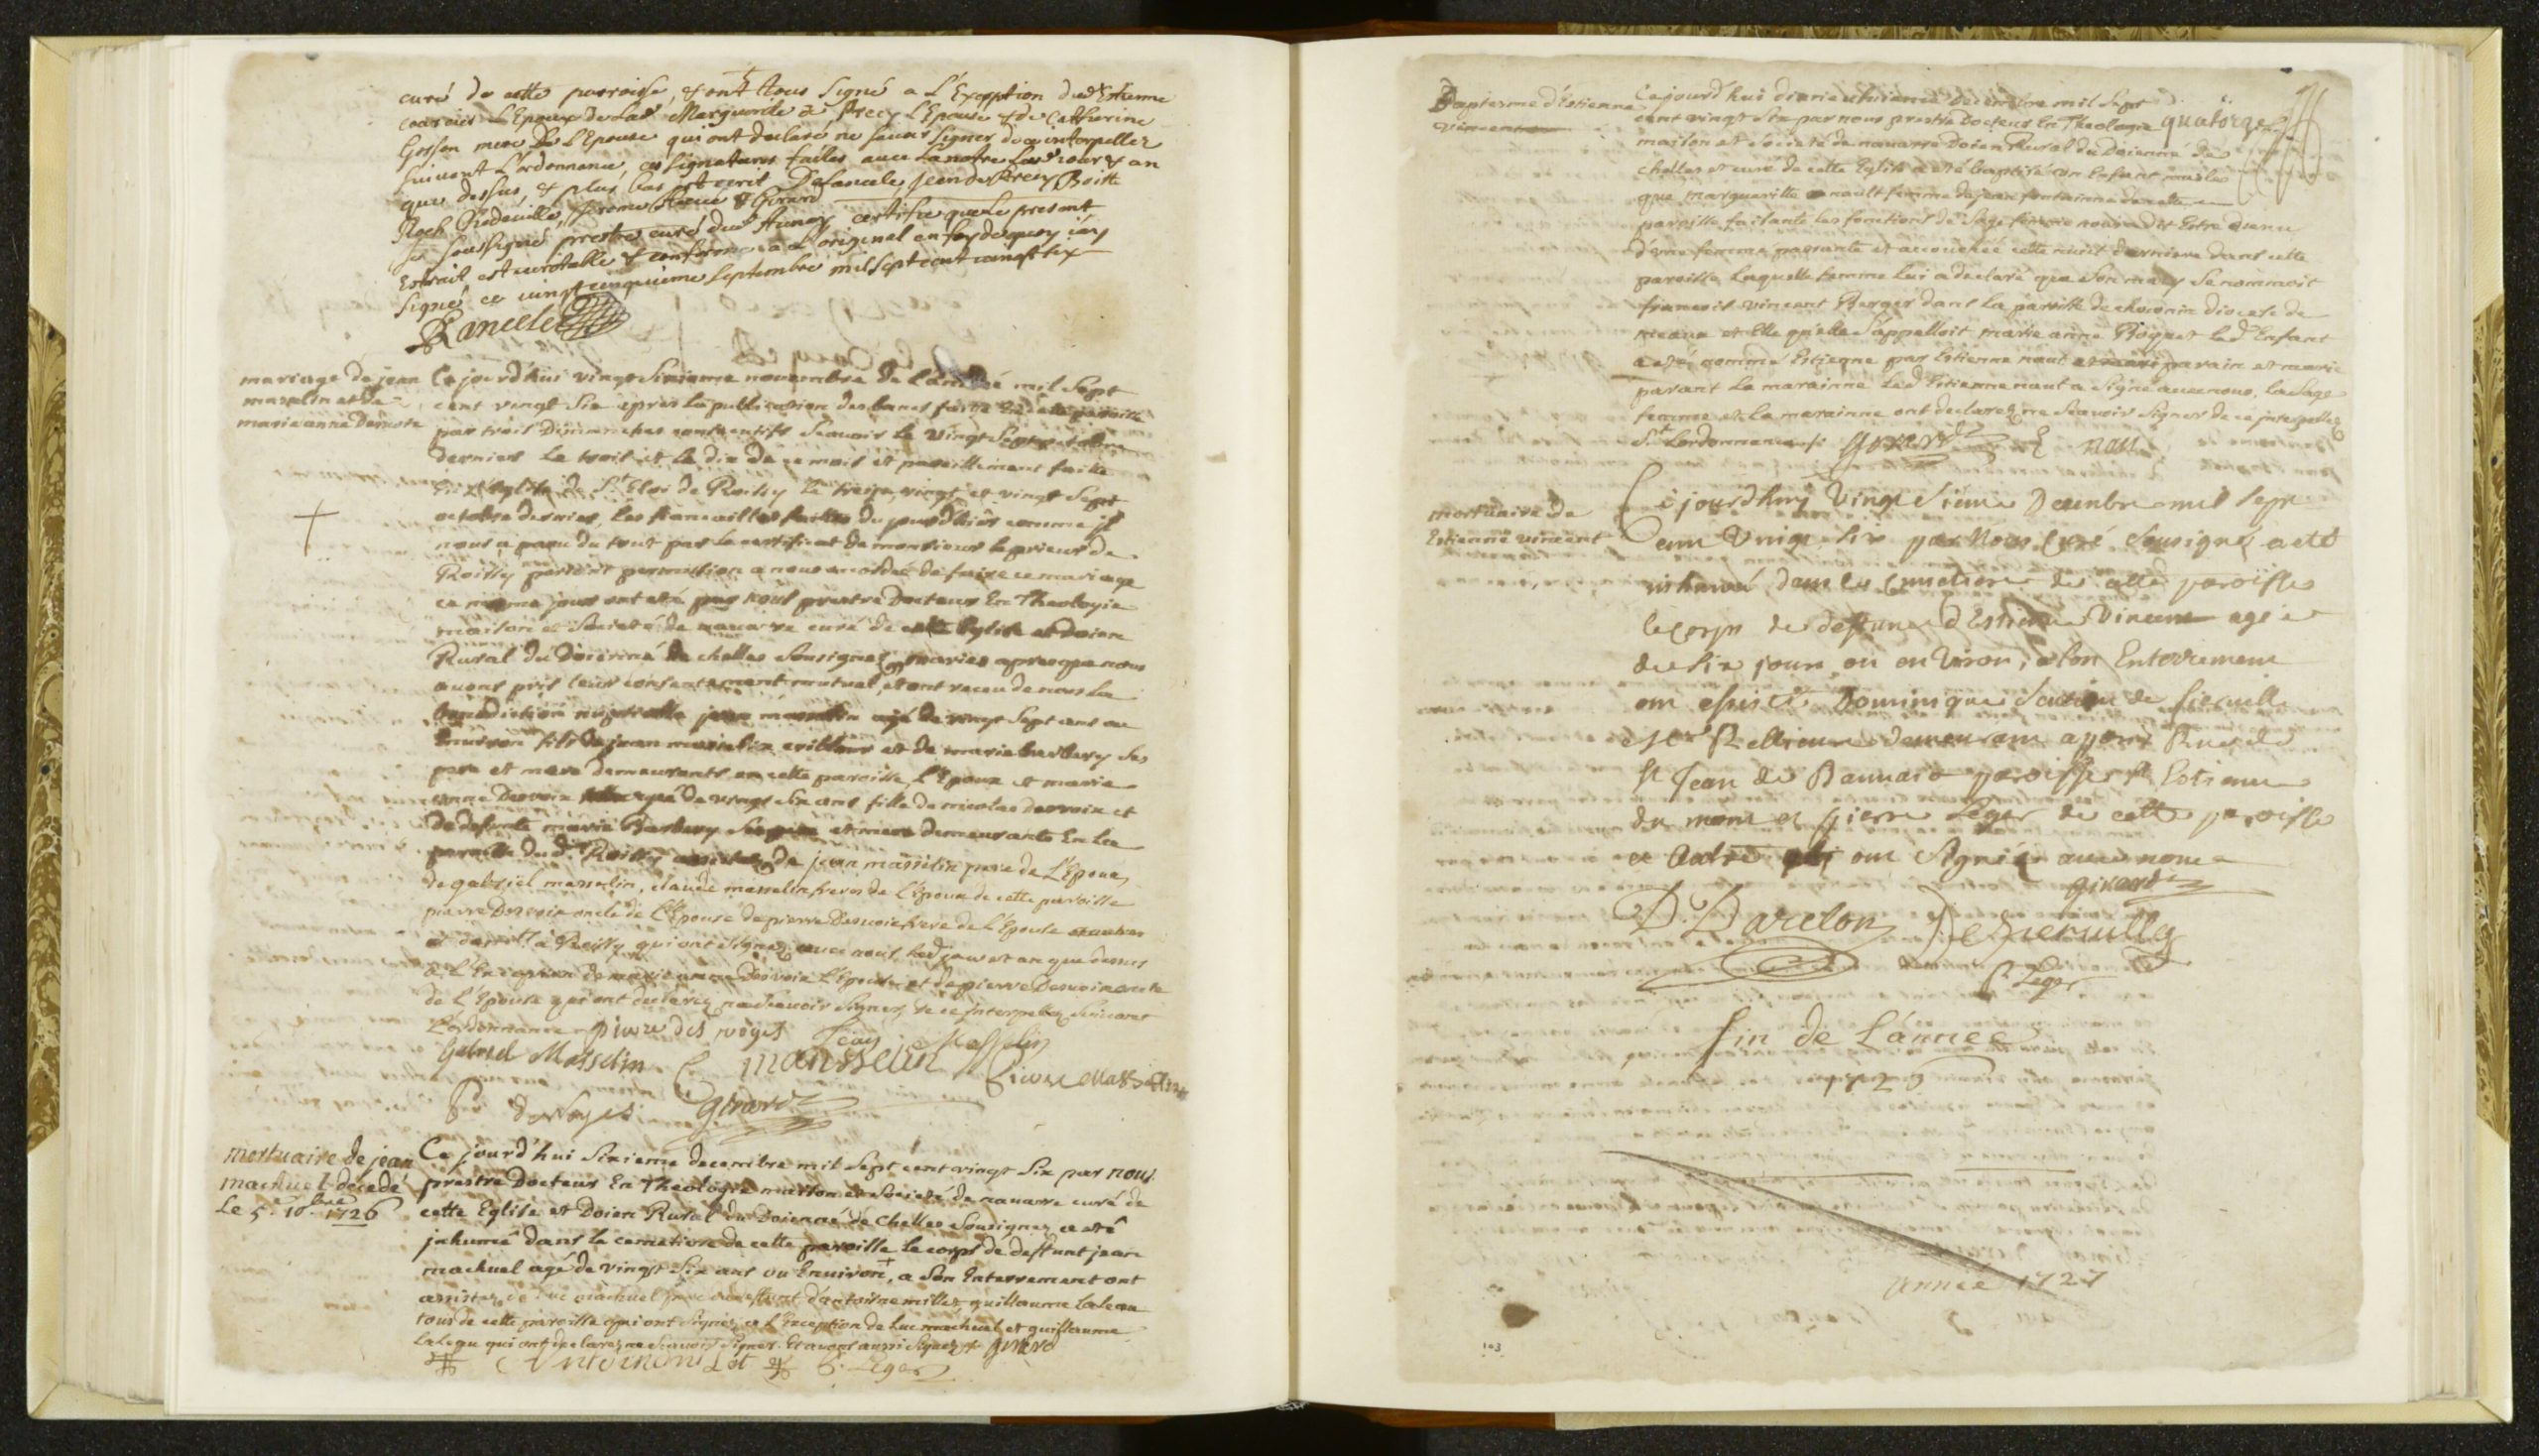 curé de cette parroisse, & ont tous signé a L'Exception dud Estienne
L'Epoux de Lad Marguerite de Precy L'Epouse & de Catherine
Gosson mere De L'Epouse qui ont declaré ne savoir signer de ce interpeller
suivant L'ordonnance, ces signatures failes avec La notre Les jour & an
que dessus, & plus bas est ecrit Delancele, Jean de Precy Boitte
Roch & Girard
Je soussigné prestre curé dud Aunay certifie que Le present
Extrait est veritable & conforme a L'original en foy dequoy iay
signé ce vingt cinquieme septembre mil sept cent vingt six
Lancele
mariage de jean
masselin et de
marie anne
Ce jourd'hui vingt sixieme novembre de L'année mil sept
cent vingt six apres la publication des bans faite En cette paroisse
par trois Dimanches consecutifs scavoir Le vingt sept octobre
dernier Le trois et Le dix de ce mois et pareillement faite
En L'Eglise de St Eloi de Roissy Le treize, vingt et vingt sept
octobre dernier, Les fiancailles faittes du jourd'hier comme il
nous a paru du tout par Le certificat de monsieur Le prieur de
Roissy portant permission a nous accordée de faire ce mariage
ce meme jour ont eté par nous prestre Docteur En Theologie
maison et Societé de navarre curé de cette Eglise et Doien
Rural du Doienné de chelles sousignez mariez apres que nous
avons pris leur consentement mutuel, et ont receu de nous La
benediction nuptialle jean masselin agé de vingt sept ans ou
Environ fils de jean masselin et de marie barbery ses
pere et mere demeurants en cette paroisse, L'Epoux et marie
anne agé de vingt six ans fille de nicolas et
de defunte marie Barbery ses pere et mere demeurante En La
paroisse du d. Roissy assistez de jean masselin pere de L'Epoux,
de gabriel masselin, claude masselin freres de L'Epoux de cette paroisse
pierre oncle de L'Epouse de pierre frere de L'Epouse
a Roissy qui ont signez avec nous Led jour et an que dessus
a L'Exception de marie anne L'Epouse et de pierre oncle
de L'Epouse qui ont declarez ne scavoir signer de ce jnterpellez suivant
L'ordonnance pierre des voyes Jean Masselin
Gabriel Masselin mansselin pierre Masselin
P desvoyes girard
mortuaire de jean
machuel decedé
Le 5e 10bre 1726
Ce jourd'hui sixieme decembre mil sept cent vingt six par nous
prestre Docteur En Theologie maison et societé de navarre curé de
cette Eglise et Doien Rural du Doienné de chelles sousignez a eté
jnhumé dans Le cemetiere de cette paroisse Le corps de deffunt jean
machuel agé de vingt six ans ou Environ, a son Enterrement ont
assistez de Luc machuel frere du deffunt d'antoine millet, guillaume Laleau
tous de cette paroisse qui ont signez a L'exception de Luc machuel et guillaume
Laleau qui ont declarez ne scavoir signer. Et avons aussi signez girard
P. Leger
Baptesme d'Estienne
vincent
Ce jourd'hui decembre mil sept
cent vingt six par nous prestre Docteur En Theologie quatorze
maison et Societé de navarre Doien Rural du Doienné de
chelles et curé de cette Eglise a eté baptisé un Enfant masle
que marguerite enault femme de jean fontainne de cette
paroisse faisante les fonctions de sage femme nous a dit Estre
d'une femme passante et accouchée cette nuit derniere dans cette
paroisse Laquelle femme Lui a declaré que son mary se nommoit
francois vincent Berger dans La paroisse de diocese de
meaux et Elle qu'elle s'appelloit marie anne Roguet Led Enfant
a eté nommé Estienne par Estienne naut parain et marie
parant La marainne Led Estienne naut a signé avec nous, La sage
femme et La marainne ont declarez ne scavoir signer de ce jnterpellez
St Lordonnance girard naut
mortuaire de
Estienne vincent
Ce jourdhuy Vingt sieme Decembre mil sept
cent Vingt six par Nous Curé sousignez a eté
inhumé dans le cimetiere de cette paroisse
le corps de deffunct d'Estienne Vincent agé
de six jours ou environ, a son Enterrement
ont assisté Dominique
demeurant a paris Rue de
St Jean de Beauvais paroisse St Estienne
du mont et pierre Leger de cette paroisse
et autre qui ont signéz avec nous
girard
D. Darclon
P. Leger
fin de L'année
1726
année 1727
103